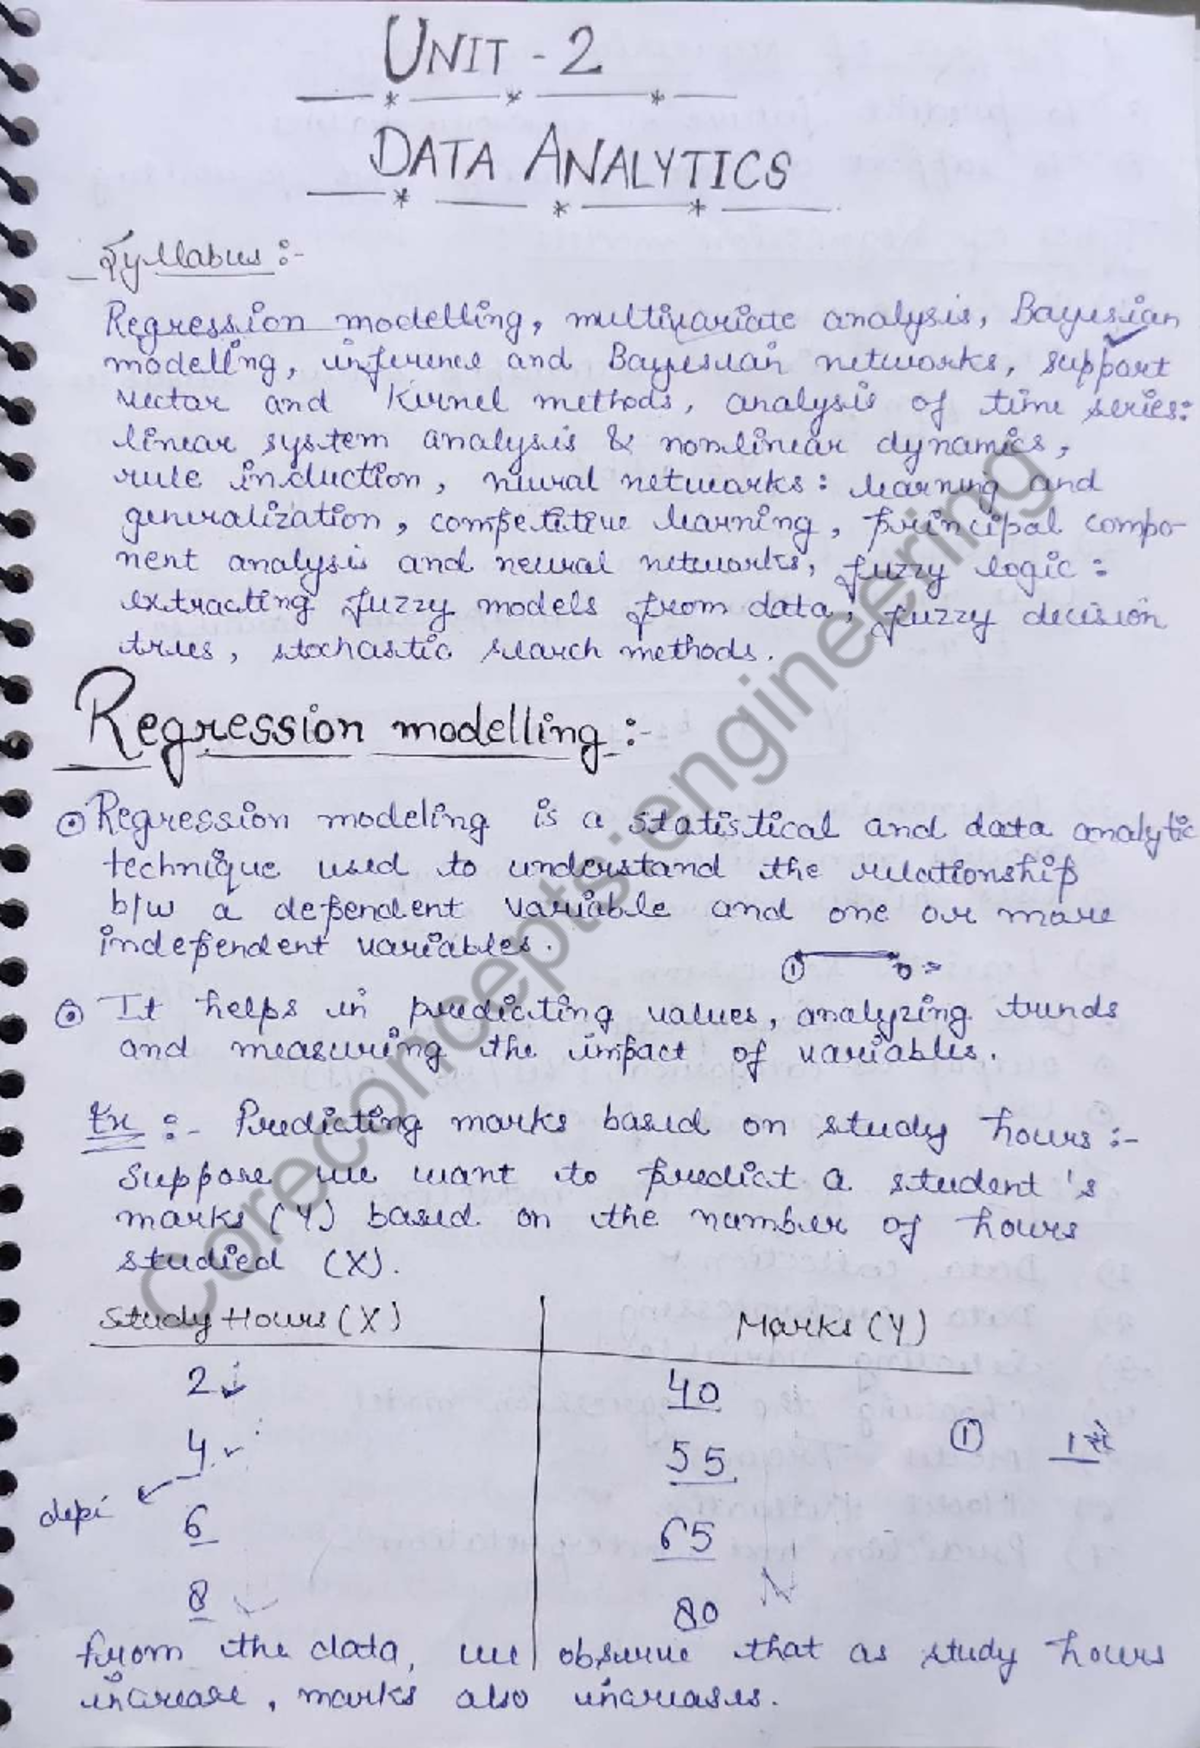 UNIT - 2
DATA ANALYTICS
Syllabus :-
Regression modelling, multivariate analysis, Bayesian
modelling, inference and Bayesian networks, support
vector and Kernel methods, analysis of time series:
linear system analysis & nonlinear dynamics,
rule induction, neural networks: learning and
generalization, competitive learning, principal compo-
nent analysis and neural networks, fuzzy logic:
extracting fuzzy models from data, fuzzy decision
trees, stochastic search methods.
Regression modelling :-
Regression modeling is a statistical and data analytic
technique used to understand the relationship
b/w a dependent variable and one or more
independent variables.
It helps in predicting values, analyzing trends
and measuring the impact of variables.
Ex :- Predicting marks based on study hours :-
Suppose we want to predict a student's
marks (Y) based on the number of hours
studied (X).
Study Hours (X) Marks (Y)
2 40
4 55
6 65
8 80
From the data, we observe that as study hours
increase, marks also increases.
Coreconcepts.iengineering